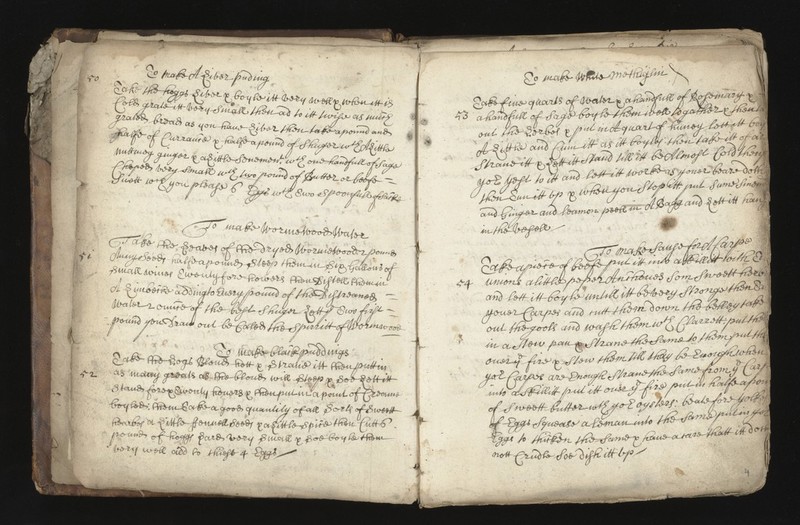 50
To make A Liver puding
Take the hoggs Liver & boyle itt very well & when itt is
Cold grate itt very small then ad to itt twise as much
grated bread as you have Liver then take a pound and
halfe of Currance & halfe a pound of Shuger wth A Little
nutmeg ginger & a Little Senemen, wth one handfull of Sage
Choped very small wth two pound of Butter or beefe
Suett wch you please 6 Eggs wth two spoonfulls of
51
To make Wormewood Water
Take the Leaves of the dryed Wormewood 2 pound
Anny seeds halfe a pound, Steep them in Six Gallons of
Small wine twenty fore howers then Distell them in
A Limbecke adding to Every pound of the Distreaned
Water 2 ounce of the best Shuger Lett ye two first
pound you draw out be Called the Spurritt of Wormwood
52
To make black puddings
Take the hogs Bloud hott & Straine itt then putt in
as many greats as the bloud will Steep & Soe Lett itt
Stand fore & twenty howers & then put in a pount of Creame
boyled, then take a good quantity of all Sorts of Sweet
hearbs a Little fennell Seeds & a Little Spice then Cutt 6
pounds of hoggs Lard very Small & Soe boyle them
very well add to thiss 4 Eggs
To make White Methiglin
53
Take five quarts of Water & a handfull of Rosemary &
a handfull of Sage boyle them well togather & then
out the Herbes & put in a quart of huney lett itt boy
A Little and Scim itt as itt boyles then take itt of a
Straine itt & Lett itt Stand till itt be Almost Cold then
yest to itt and lett itt worke as youer beare doth
then tun itt up & when you Stop itt put Some
and Ginger and Leamon peell in A Bagg and Lett itt han
in the Vessell
54
To make Sause for Carpes
Take a peece of beefe put itt into a skillitt with
unions a little peper Anchoves Som Sweett herb
and lett itt boyle untill itt be very Stronge then
youer Carpes and cutt them down the belley take
out the gooll and wash them wth Clarrett put the
in a Stew pan & Straine the Same to them put the
over ye fire & Stew them till thay be Enough when
yor Carpes are Enough Straine the Same from ye Carp
into a skillitt put itt over ye fire put in halfe a poun
of Sweett butter wth yor oysters: beate fore yolks
of Eggs Squease a Leman into the Same put in yor
Eggs to thicken the Same & have a care thatt itt do
nott Crudle Soe dish itt up
4